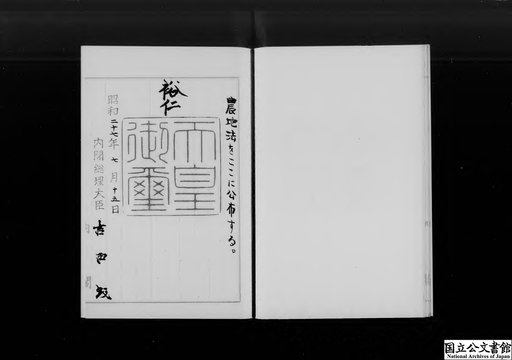 農地法をここに公布する。
裕仁
天皇
御璽
昭和二十七年七月十五日
内閣総理大臣 吉田茂
国立公文書館
National Archives of Japan